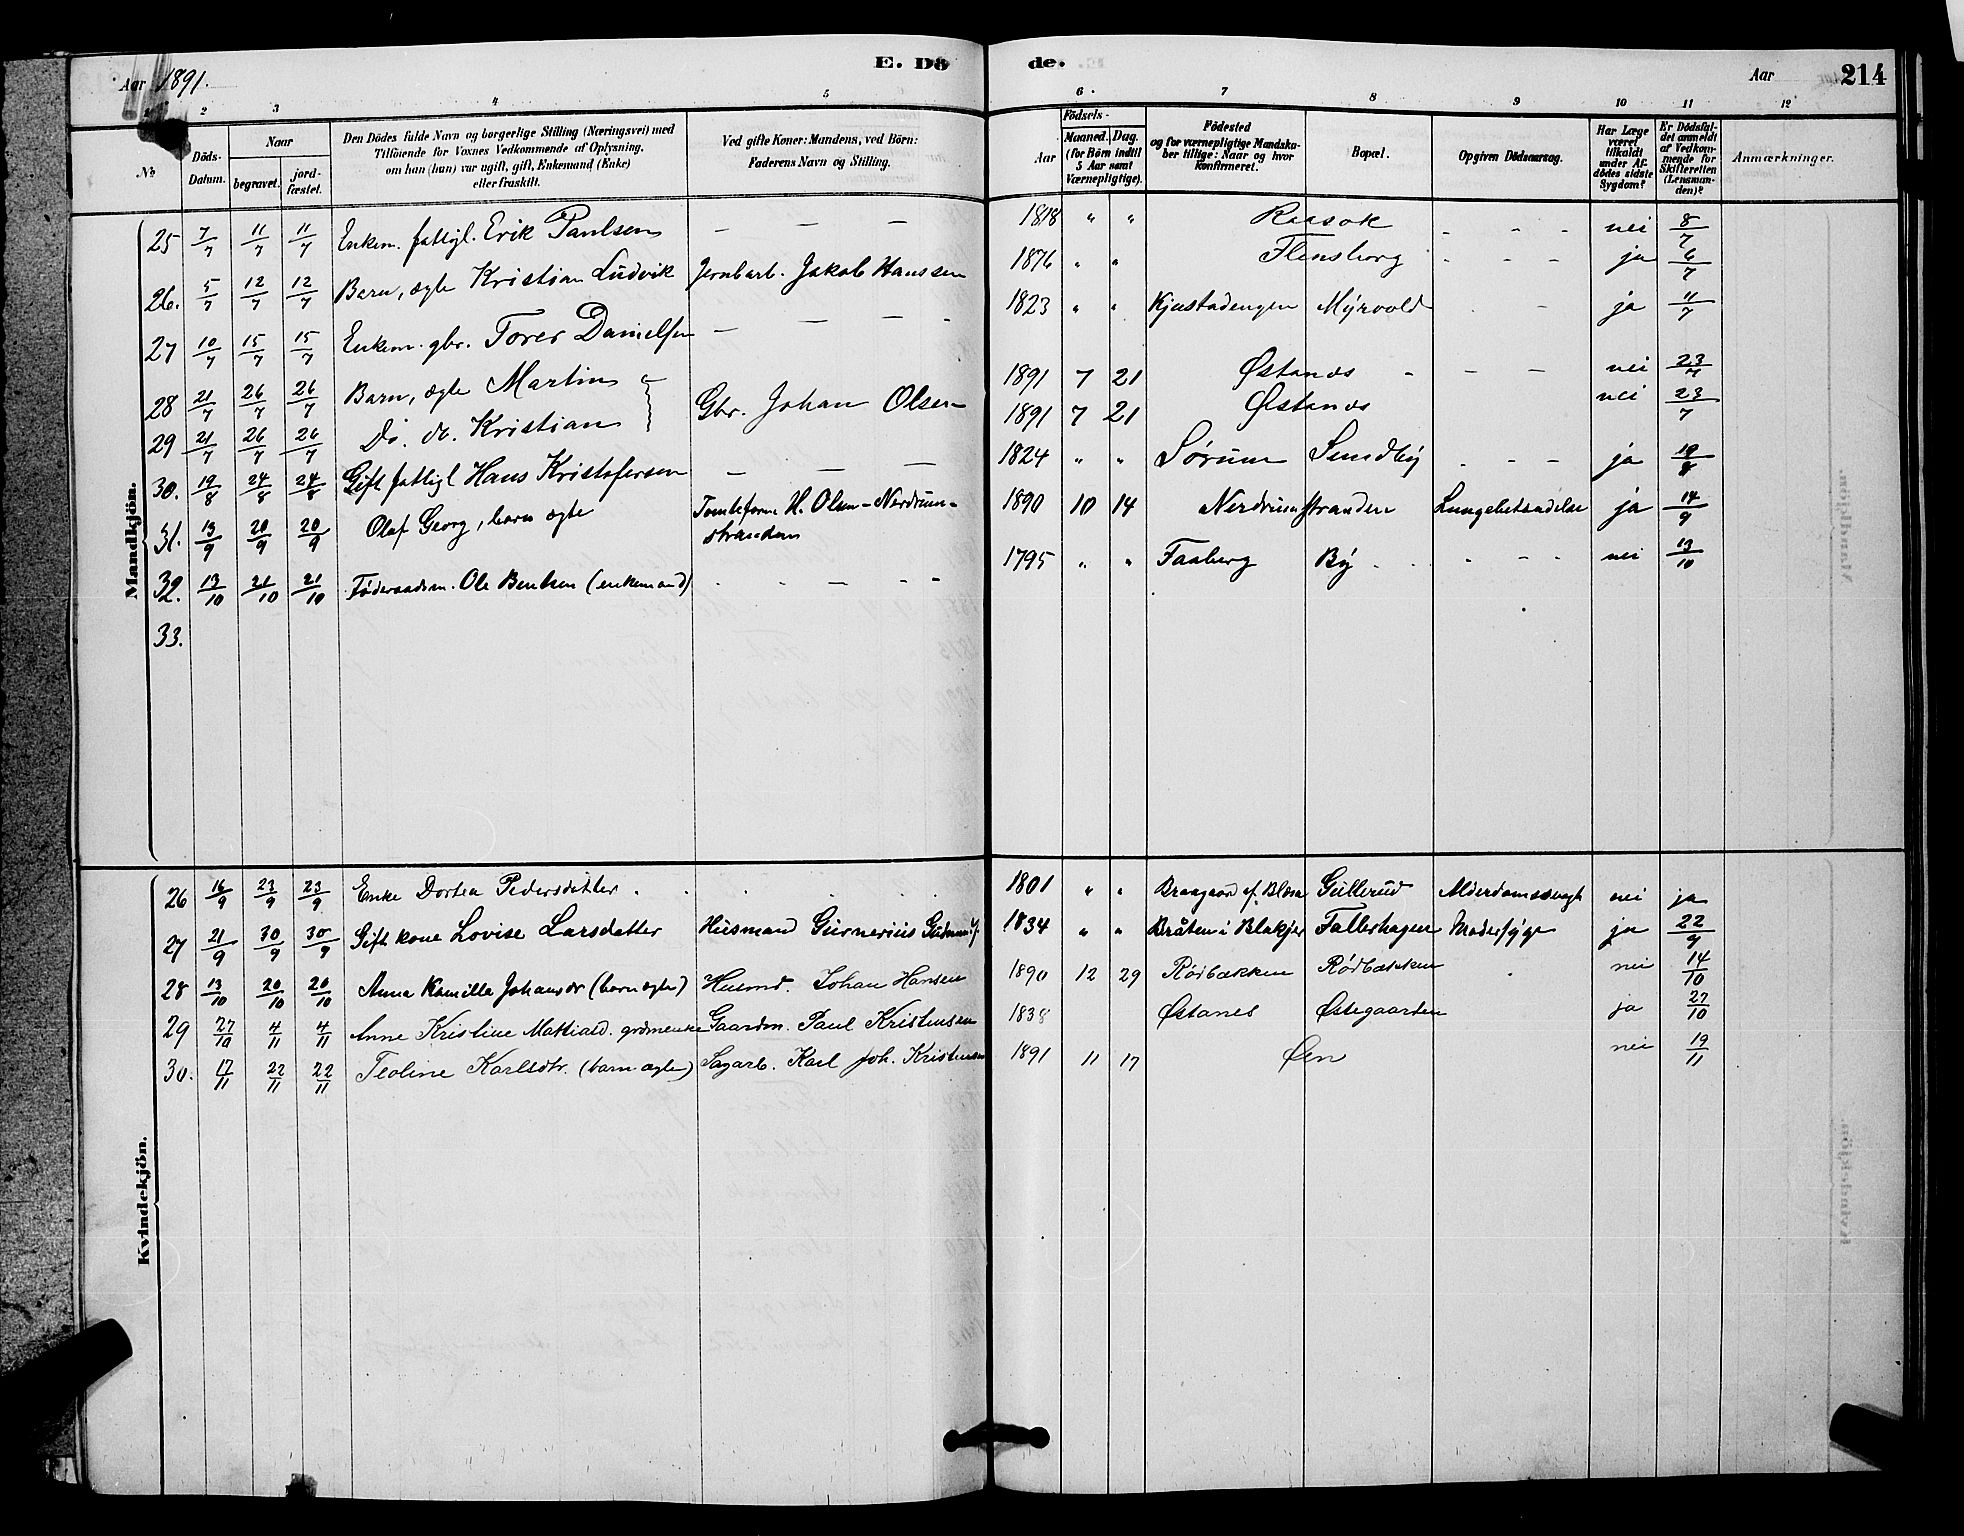 E. Dö de.
Aar 1891. Aar 214
2 3 4 5 6 7 8 9 10 11 12
No Döds-Datum. Naar begravet. jord-fæstet. Den Dödes fulde Navn og borgerlige Stilling (Næringsvei) med Tilföiende for Voxnes Vedkommende af Oplysning, om han (hun) var ugift, gift, Enkemand (Enke) eller fraskilt. Ved gifte Koner: Mandens, ved Börn: Faderens Navn og Stilling. Födsels- Aar Maaned. Dag. (for Börn indtil 5 Aar samt Værnepligtige). Födested og for værnepligtige Mandska-ber tillige: Naar og hvor konfirmeret. Bopæl. Opgiven Dödsaarsag. Har Læge været tilkaldt under Af-dödes sidste Sygdom? Er Dödsfal-det anmeldt af Vedkom-mende for Skifteretten (Lensman-den)? Anmærkninger.
Mandkjön.
25 7/7 11/7 11/7 Enkem. fattigl. Erik Paulsen — — — 1818 " " Raasok - - - nei 8/7
26. 5/7 12/7 12/7 Barn, ægte Kristian Ludvik Jernbarb. Jakob Hanssen 1876 " " Flensborg - - - ja 6/7
27 10/7 15/7 15/7 Enkem. gbr. Torer Danielsen — — — - 1823 " " Kjustadengen Myrvold - - ja 11/7
28 21/7 26/7 26/7 Barn, ægte Martin Gbr. Johan Olsen 1891 7 21 Østanes - — — nei 23/7
29 21/7 26/7 26/7 Do. do. Kristian 1891 7 21 Østanes nei 23/7
30. 19/8 24/8 24/8 Gift fattigl Hans Kristofersen — — — 1824 " " Sørum Sundby - - - ja 19/8
31. 13/9 20/9 20/9 Olaf Georg, barn ægte Tomteform H. Olsen - Nerdrum-stranden 1890 10 14 Nerdrumstranden Lungebetændelse ja 14/9
32. 13/10 21/10 21/10 Føderaadsm. Ole Bentsen (enkemand) - - — - - 1795 " " Faaberg By - - - nei 13/10
33.
Kvindekjön.
26 16/9 23/9 23/9 Enke Dortea Pedersdatter 1801 " " Gullerud Alderdomssvagh nei ja
27 21/9 30/9 30/9 Gift kone Lovise Larsdatter Husmand Gunerius 1834 " " Bråten i Blakjer Fallerhagen Modersyge ja 22/9
28 13/10 20/10 20/10 Anna Kamilla Johansdr (barn ægte) Husmd. Johan Hansen 1890 12 29 Rödbækken Rödbækken nei 14/10
29 27/10 4/11 4/11 Anne Kristine Mattiasd. grdmenke Gaardm. Paul Kristensen 1838 Østanes Østegaarden ja 27/10
30. 17/11 22/11 22/11 Teoline Karlsdtr. (barn ægte) Sagarb. Karl Joh. Kristensen 1891 11 17 Øen nei 19/11